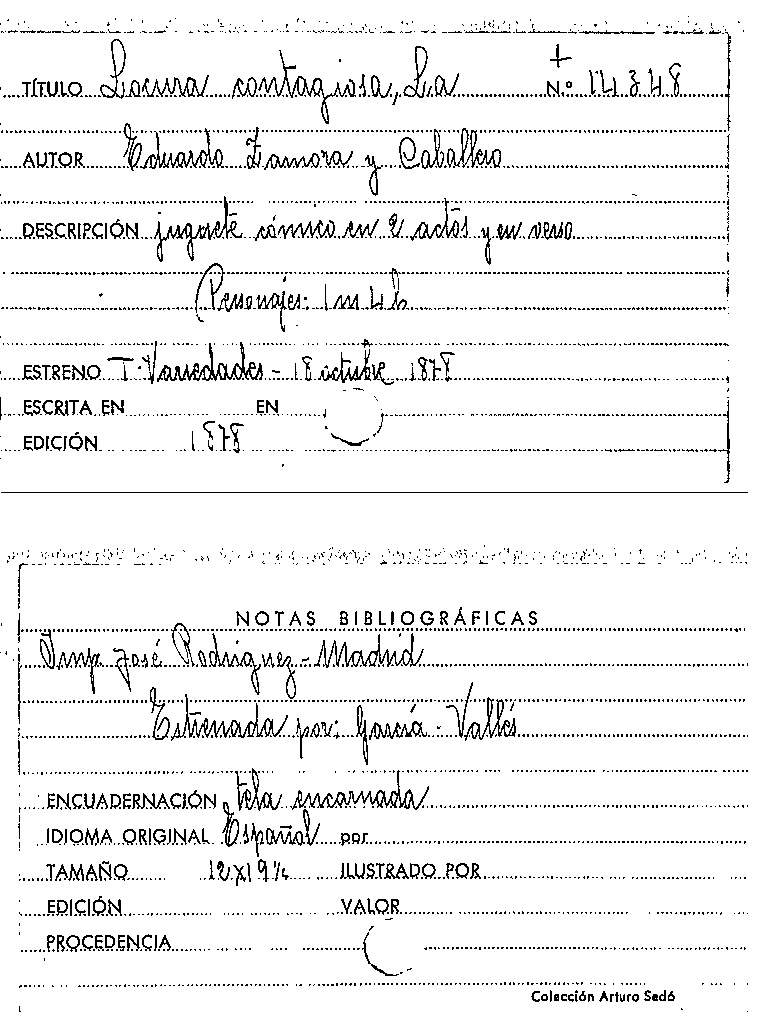 TÍTULO Locura contagiosa, La N.º 14348
AUTOR Eduardo Zamora y Caballero
DESCRIPCIÓN juguete cómico en 2 actos y en verso
Personajes: 1 m 4 h
ESTRENO T. Variedades - 18 octubre 1878
ESCRITA EN EN
EDICIÓN 1878
NOTAS BIBLIOGRÁFICAS
Imp. José Rodriguez - Madrid
Estrenada por: García - Vallés
ENCUADERNACIÓN tela encarnada
IDIOMA ORIGINAL Español por
TAMAÑO 12x19½ ILUSTRADO POR
EDICIÓN VALOR
PROCEDENCIA
Colección Arturo Sedó